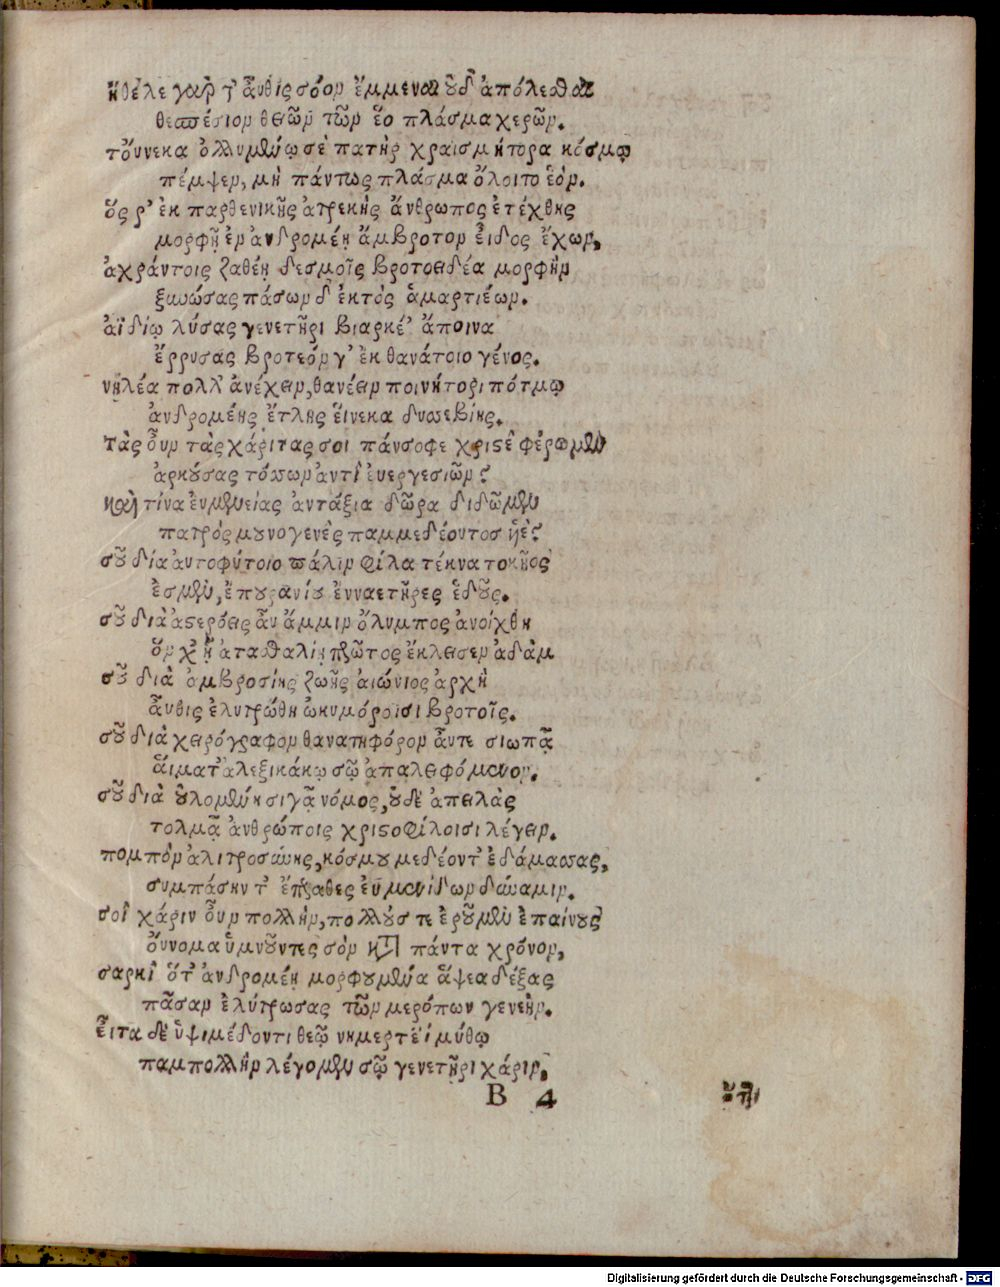 ἤθελε γὰρ τ' αὖθις σόον ἔμμεναι οὐδ' ἀπόλεσθαι
θεσπέσιον θεῶν τῶν ἕο πλάσμα χερῶν.
τοὔνεκα ὀλλυμένῳ σὲ πατὴρ χραισμήτορα κόσμῳ
πέμψεν, μὴ πάντως πλάσμα ὄλοιτο ἑόν.
ὅς ῥ' ἐκ παρθενικῆς ἀτρεκὴς ἄνθρωπος ἐτέχθης
μορφῇ ἐν ἀνδρομέῃ ἄμβροτον εἶδος ἔχων,
ἀχράντοις ζαθέῃ δεσμοῖς βροτοειδέα μορφὴν
ξυνώσας πάσων δ' ἐκτὸς ἁμαρτιέων.
ἀϊδίῳ λύσας γενετῆρι βιαρκέ' ἄποινα
ἔρρυσας βροτεόν γ' ἐκ θανάτοιο γένος.
νηλέα πολλ' ἀνέχειν, θανέειν ποινήτορι πότμῳ
ἀνδρομένης ἔτλης εἵνεκα δυσσεβίης.
τὰς οὖν τὰς χάριτας σοι πάνσοφε χριστὲ φέρωμεν
ἀρκούσας τόσσων ἀντὶ ἐυεργεσιῶν;
καὶ τίνα ἐυμενείας ἀντάξια δῶρα διδῶμεν
πατρὸς μουνογενὲς παμμεδέοντος ἠές;
σοῦ δία αὐτοφύτοιο πάλιν φίλα τέκνα τοκῆος
ἐσμὲν, ἐπουρανίου ἐνναετῆρες ἑδοῦς.
σοῦ διὰ ἀστερόεις αὖ ἄμμιν ὄλυμπος ἀνοίχθη
ὅν χ' ᾗ ἀτασθαλίῃ πρῶτος ἔκλεισεν ἀδὰμ
σοῦ διὰ ἀμβροσίης ζωῆς αἰώνιος ἀρχὴ
αὖθις ἐλυτρώθη ὠκυμόροισι βροτοῖς.
σοῦ διὰ χειρόγραφον θανατηφόρον αὖτε σιωπᾷ
αἵματ' ἀλεξικάκῳ σῷ ἀπαλειφόμενον.
σοῦ διὰ οὐλομένη σιγᾷ νόμος, οὐδὲ ἀπειλὰς
τολμᾷ ἀνθρώποις χριστοφίλοισι λέγειν.
πομπὸν ἀλιτροσύνης, κόσμου μεδέοντ' ἐδάμασσας,
συμπάσην τ' ἔπραθες εὐμενίδων δύναμιν.
σοὶ χάριν οὖν πολλὴν, πολλούς τε ἐροῦμεν ἐπαίνους
οὔνομα ὑμνοῦντες σὸν κατὰ πάντα χρόνον,
σαρκὶ ὅτ' ἀνδρομέῃ μορφουμένα ἅψεα δέξας
πᾶσαν ἐλύτρωσας τῶν μερόπων γενεήν.
εἶτα δὲ ὑψιμέδοντι θεῷ νημερτέϊ μύθῳ
παμπολλὴν λέγομεν σῷ γενετῆρι χάριν,
B 4
Digitalisierung gefördert durch die Deutsche Forschungsgemeinschaft - DFG